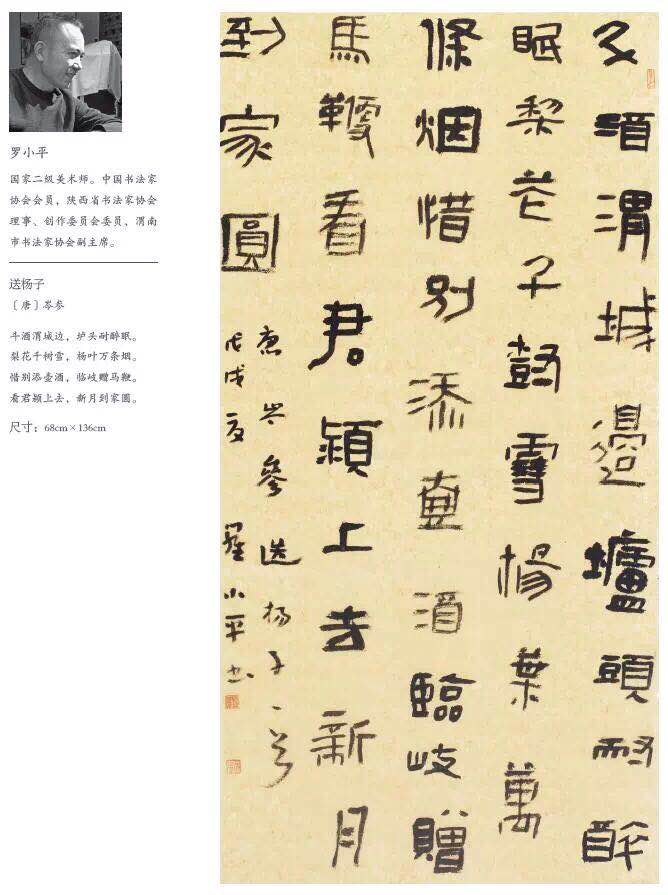 罗小平
国家二级美术师。中国书法家
协会会员，陕西省书法家协会
理事、创作委员会委员、渭南
市书法家协会副主席。
送杨子
〔唐〕岑参
斗酒渭城边，垆头耐醉眠。
梨花千树雪，杨叶万条烟。
惜别添壶酒，临岐赠马鞭。
看君颖上去，新月到家圆。
尺寸：68cm×136cm
斗酒渭城邊壚頭耐醉
眠梨花千樹雪楊葉萬
條烟惜別添壺酒臨岐贈
馬鞭看君潁上去新月
到家圓
唐岑參送杨子一首
戊戌夏羅小平书